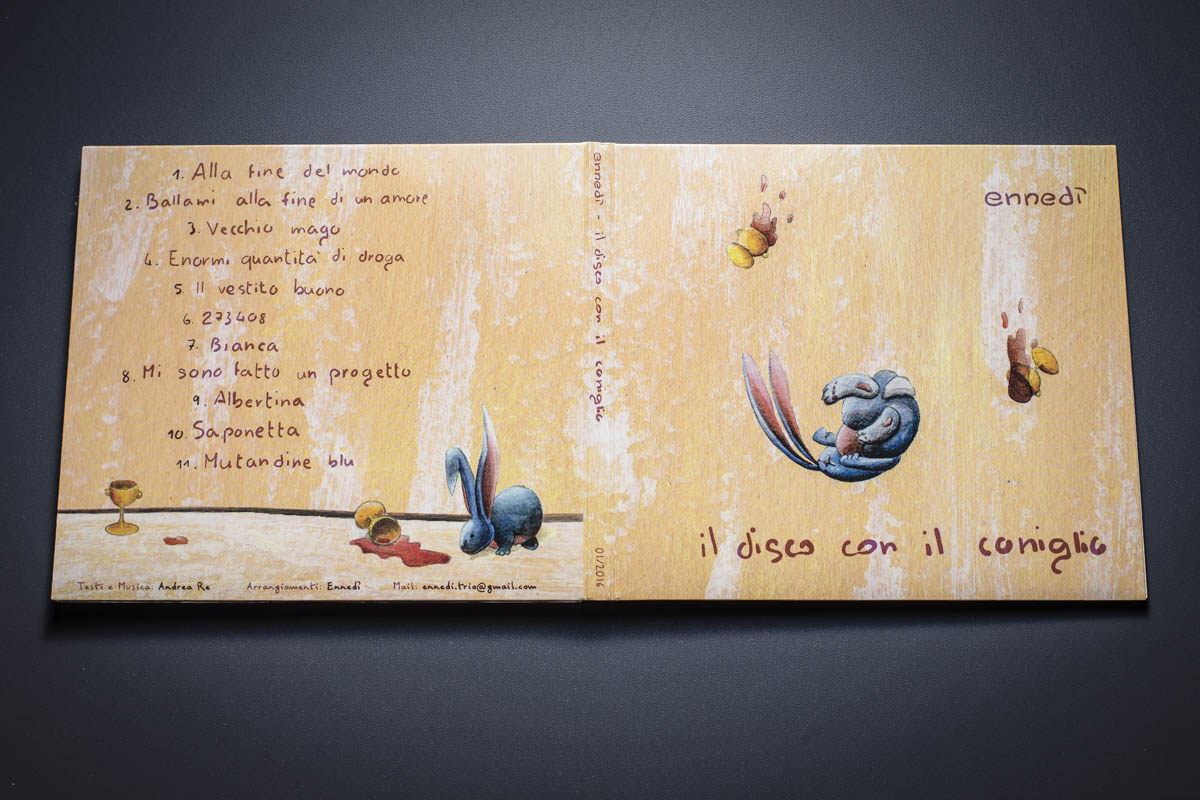 1. Alla fine del mondo
2. Ballami alla fine di un amore
3. Vecchio mago
4. Enormi quantità di droga
5. Il vestito buono
6. 273408
7. Bianca
8. Mi sono fatto un progetto
9. Albertina
10. Saponetta
11. Mutandine blu
Testi e Musica: Andrea Re Arrangiamenti: Ennedì Mail: ennedi.trio@gmail.com
ennedì - il disco con il coniglio
01/2016
ennedì
il disco con il coniglio